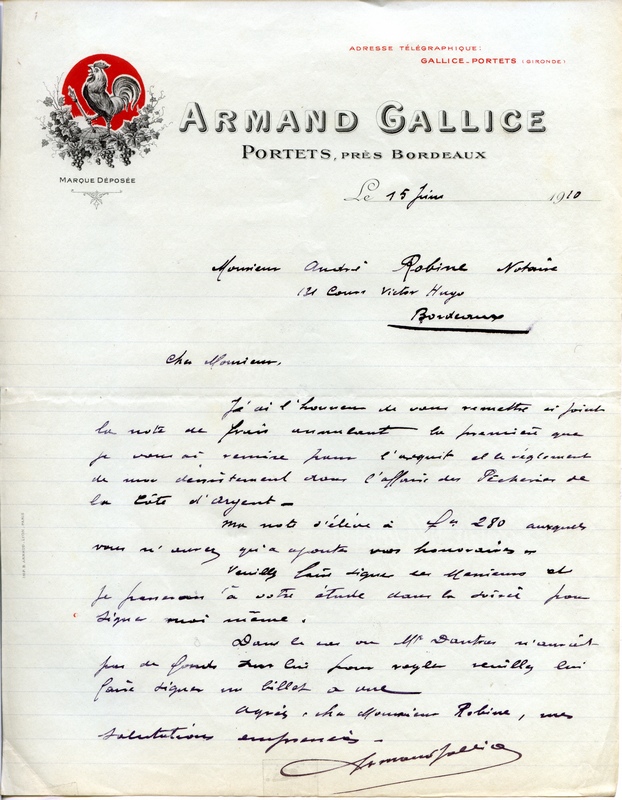 ADRESSE TÉLÉGRAPHIQUE:
GALLICE-PORTETS (GIRONDE)
ARMAND GALLICE
PORTETS, PRÈS BORDEAUX
MARQUE DÉPOSÉE
Le 15 Juin 1910
Monsieur André Robine Notaire
131 Cours Victor Hugo
Bordeaux
Cher Monsieur,
J'ai l'honneur de vous remettre ci joint
la note de frais annulant la première que
je vous ai remise pour l'acquit et le réglement
de mon désistement dans l'affaire des Pêcheries de
la Côte d'Argent —
Ma note s'élève à Frs 280 auxquels
vous n'aurez qu'a ajouter vos honoraires
Veuillez faire signer ces Messieurs et
je passerai à votre étude dans la soirée pour
signer moi même.
Dans le cas ou Mr Dautras n'aurait
pas de fonds sur lui pour regler veuillez lui
faire signer un billet a vue
Agréez, cher Monsieur Robine, mes
salutations empressées —
Armand Gallice